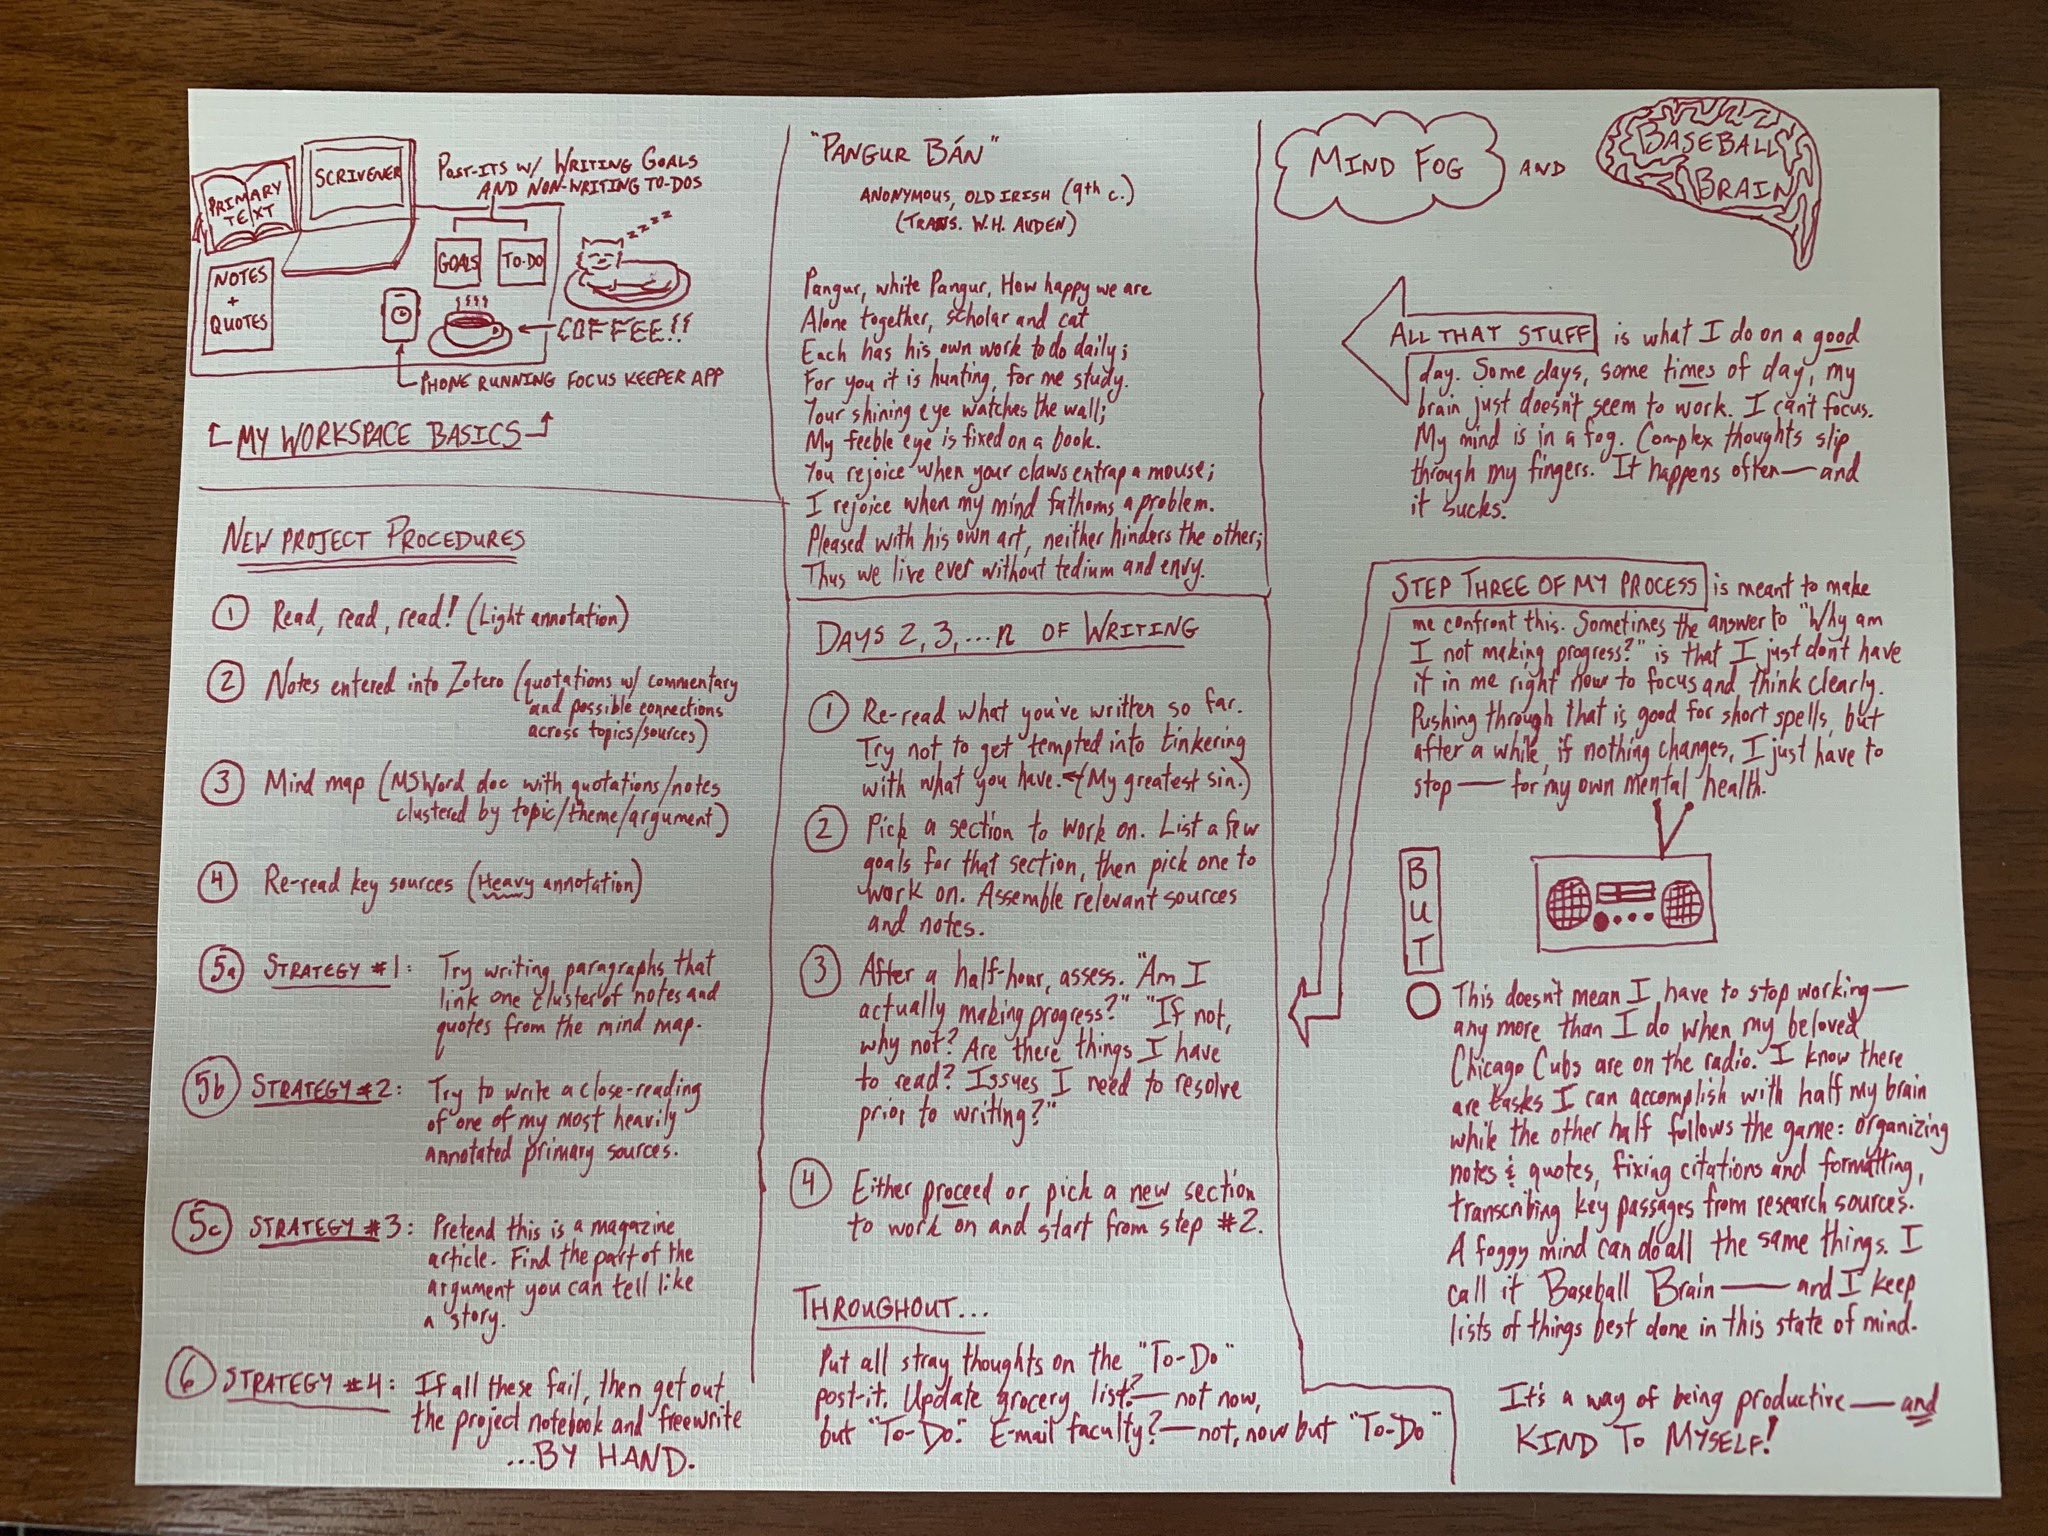 PRIMARY TEXT
SCRIVENER
POST-ITS W/ WRITING GOALS
AND NON-WRITING TO-DOS
NOTES
+
QUOTES
GOALS
TO-DO
zzzz
COFFEE!!
PHONE RUNNING FOCUS KEEPER APP
MY WORKSPACE BASICS
NEW PROJECT PROCEDURES
1 Read, read, read! (Light annotation)
2 Notes entered into Zotero (quotations w/ commentary
and possible connections
across topics/sources)
3 Mind map (MSWord doc with quotations/notes
clustered by topic/theme/argument)
4 Re-read key sources (Heavy annotation)
5a STRATEGY #1: Try writing paragraphs that
link one cluster of notes and
quotes from the mind map.
5b STRATEGY #2: Try to write a close-reading
of one of my most heavily
annotated primary sources.
5c STRATEGY #3: Pretend this is a magazine
article. Find the part of the
argument you can tell like
a story.
6 STRATEGY #4: If all these fail, then get out
the project notebook and freewrite
...BY HAND.
"PANGUR BÁN"
ANONYMOUS, OLD IRISH (9th c.)
(TRANS. W.H. AUDEN)
Pangur, white Pangur, How happy we are
Alone together, scholar and cat
Each has his own work to do daily;
For you it is hunting, for me study.
Your shining eye watches the wall;
My feeble eye is fixed on a book.
You rejoice when your claws entrap a mouse;
I rejoice when my mind fathoms a problem.
Pleased with his own art, neither hinders the other;
Thus we live ever without tedium and envy.
DAYS 2, 3, ...n OF WRITING
1 Re-read what you've written so far.
Try not to get tempted into tinkering
with what you have. (My greatest sin.)
2 Pick a section to work on. List a few
goals for that section, then pick one to
work on. Assemble relevant sources
and notes.
3 After a half-hour, assess. "Am I
actually making progress?" "If not,
why not? Are there things I have
to read? Issues I need to resolve
prior to writing?"
4 Either proceed or pick a new section
to work on and start from step #2.
THROUGHOUT...
Put all stray thoughts on the "To-Do"
post-it. Update grocery list?—not now,
but "To-Do." E-mail faculty?—not, now but "To-Do"
MIND FOG AND BASEBALL BRAIN
ALL THAT STUFF is what I do on a good
day. Some days, some times of day, my
brain just doesn't seem to work. I can't focus.
My mind is in a fog. Complex thoughts slip
through my fingers. It happens often—and
it sucks.
STEP THREE OF MY PROCESS is meant to make
me confront this. Sometimes the answer to "Why am
I not making progress?" is that I just don't have
it in me right now to focus and think clearly.
Pushing through that is good for short spells, but
after a while, if nothing changes, I just have to
stop—for my own mental health.
BUT
This doesn't mean I have to stop working—
any more than I do when my beloved
Chicago Cubs are on the radio. I know there
are tasks I can accomplish with half my brain
while the other half follows the game: organizing
notes & quotes, fixing citations and formatting,
transcribing key passages from research sources.
A foggy mind can do all the same things. I
call it Baseball Brain—and I keep
lists of things best done in this state of mind.
It's a way of being productive—and
KIND TO MYSELF!